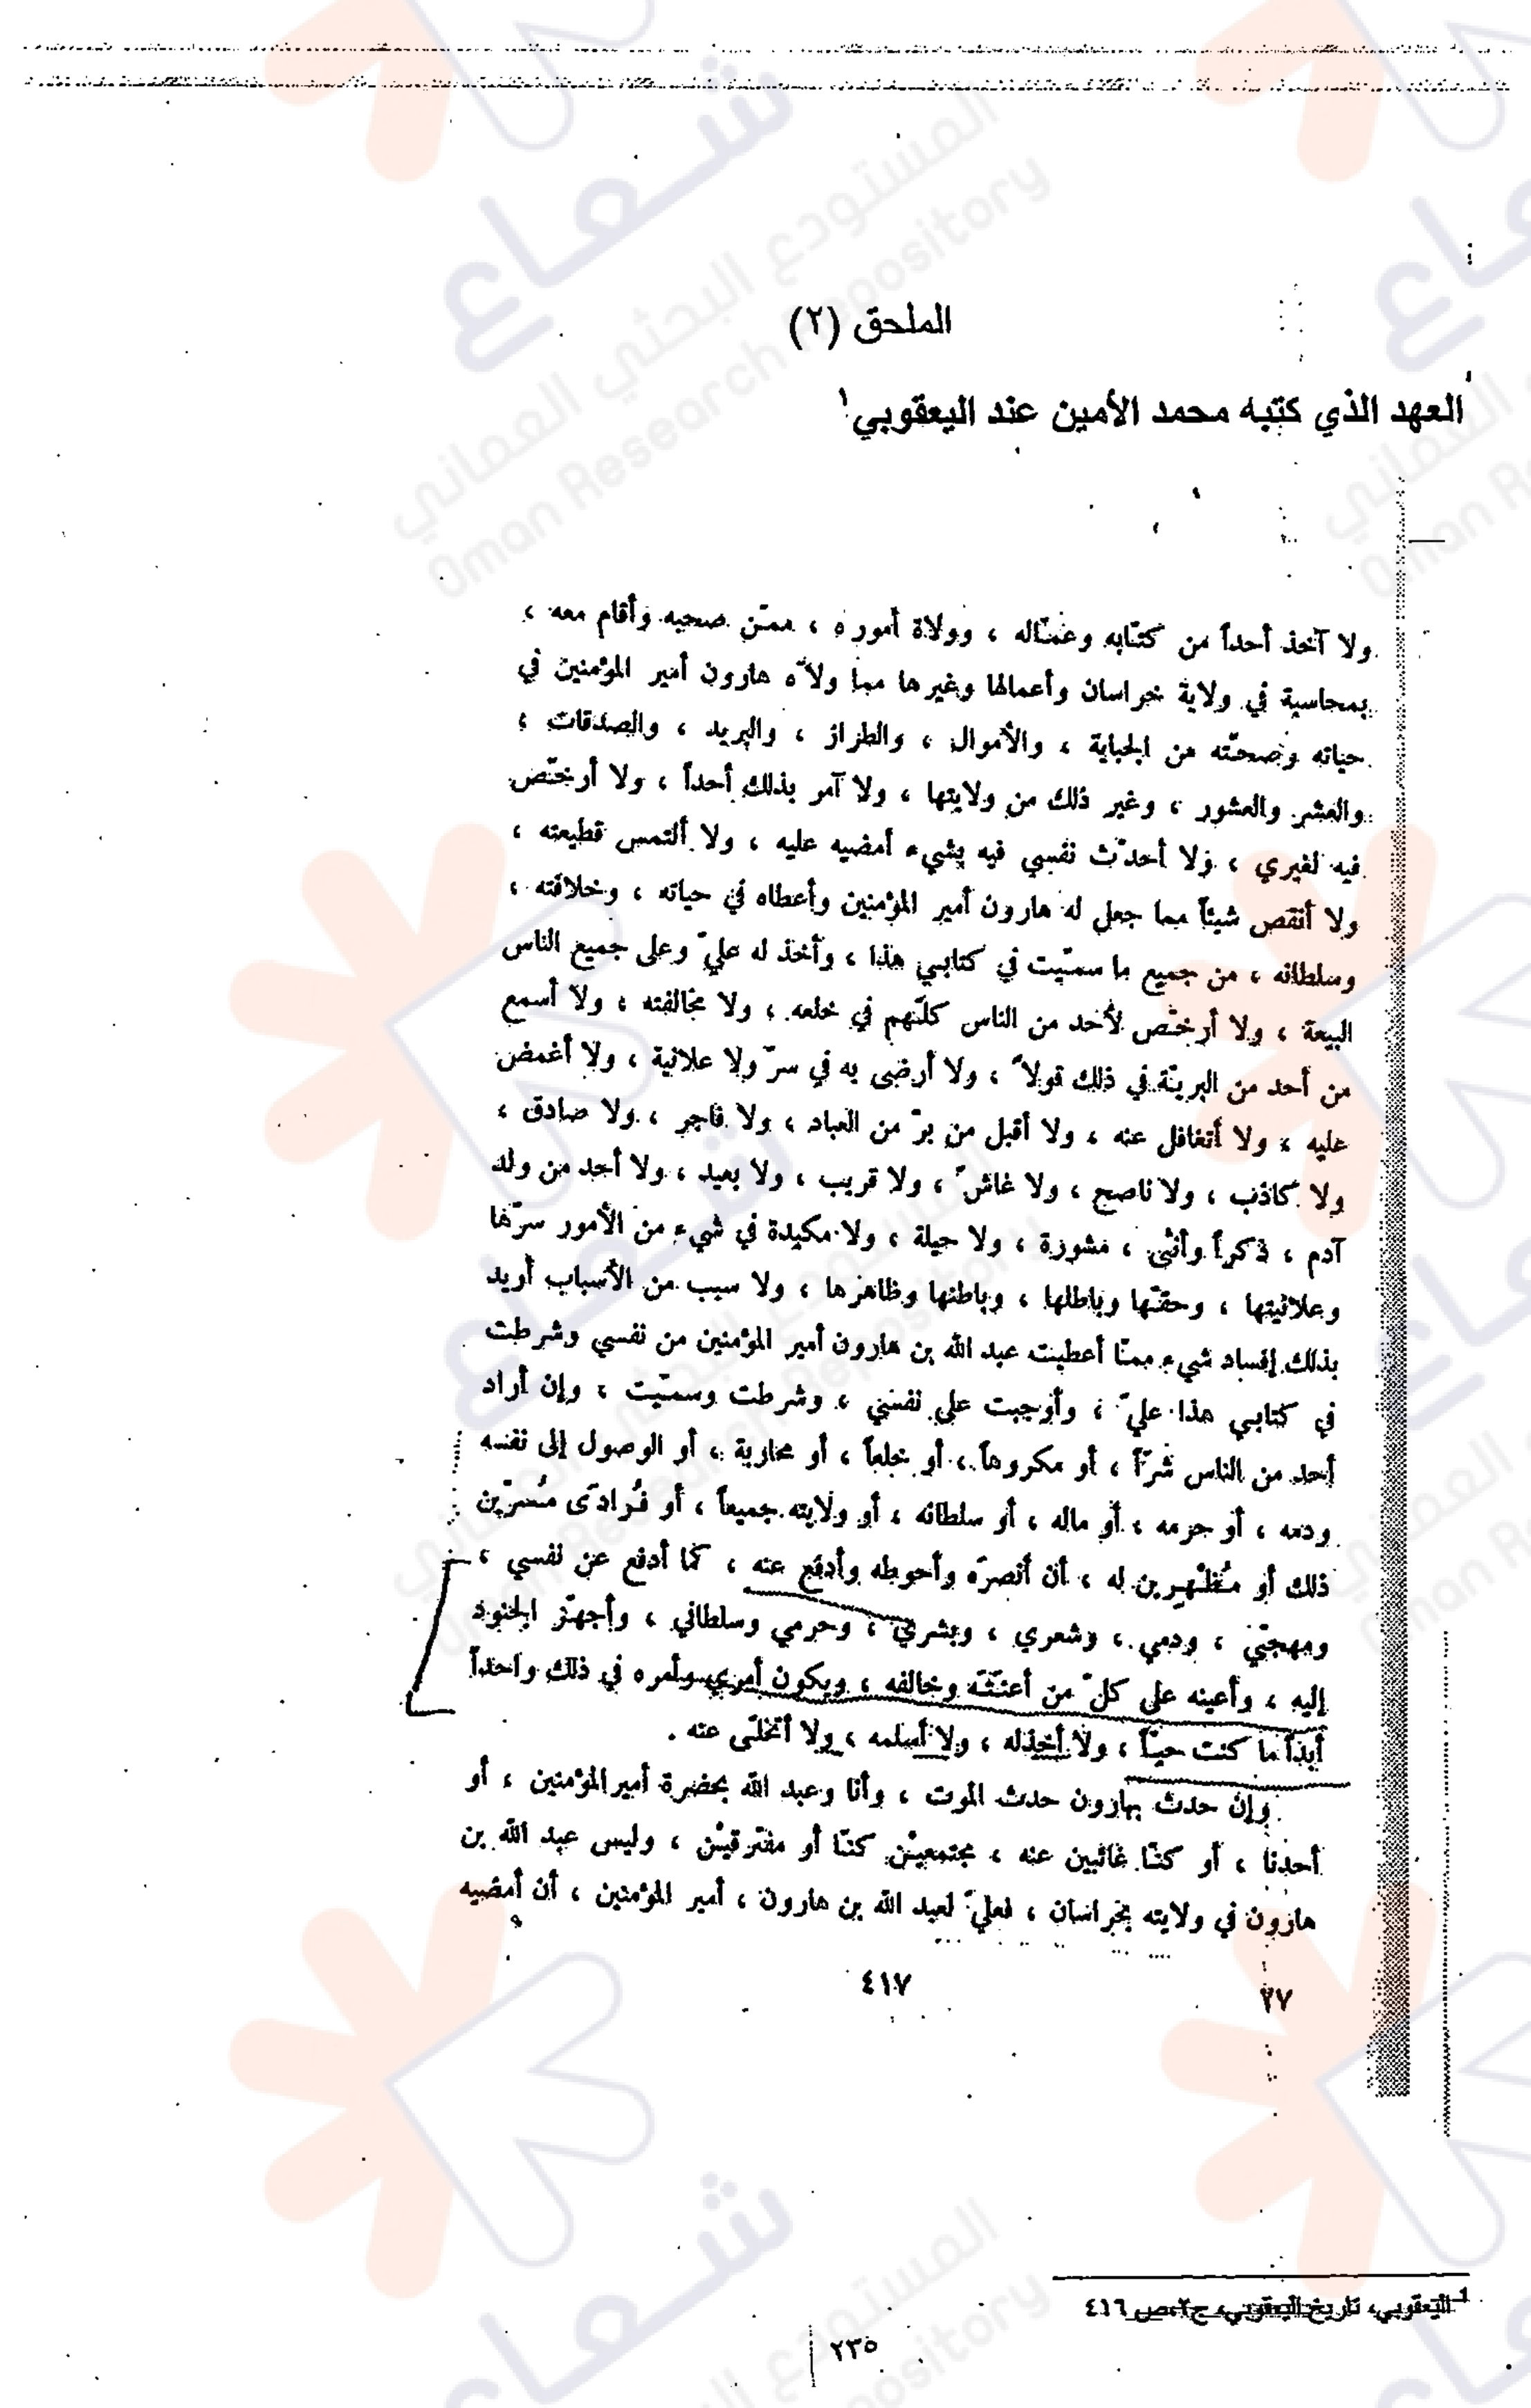 الملحق (٢)
العهد الذي كتبه محمد الأمين عند اليعقوبي١
ولا آخذ أحداً من كتّابه وعمّاله ، وولاة أموره ، ممّن صحبه وأقام معه ،
بمحاسبة في ولاية خراسان وأعمالها وغيرها مما ولاّه هارون أمير المؤمنين في
حياته وصحّته من الجباية ، والأموال ، والطراز ، والبريد ، والصدقات ،
والعشر والعشور ، وغير ذلك من ولايتها ، ولا آمر بذلك أحداً ، ولا أرخّص
فيه لغيري ، ولا أحدّث نفسي فيه بشيء أمضيه عليه ، ولا ألتمس قطيعته ،
ولا أنقص شيئاً مما جعل له هارون أمير المؤمنين وأعطاه في حياته ، وخلافته ،
وسلطانه ، من جميع ما سمّيت في كتابي هذا ، وآخذ له عليّ وعلى جميع الناس
البيعة ، ولا أرخّص لأحد من الناس كلّهم في خلعه ، ولا مخالفته ، ولا أسمع
من أحد من البريّة في ذلك قولاً ، ولا أرضى به في سرّ ولا علانية ، ولا أغمض
عليه ، ولا أتغافل عنه ، ولا أقبل من برّ من العباد ، ولا فاجر ، ولا صادق ،
ولا كاذب ، ولا ناصح ، ولا غاشّ ، ولا قريب ، ولا بعيد ، ولا أحد من ولد
آدم ، ذكراً وأنثى ، مشورة ، ولا حيلة ، ولا مكيدة في شيء من الأمور سرّها
وعلانيتها ، وحقّها وباطلها ، وباطنها وظاهرها ، ولا سبب من الأسباب أريد
بذلك إفساد شيء ممّا أعطيت عبد الله بن هارون أمير المؤمنين من نفسي وشرطت
في كتابي هذا عليّ ، وأوجبت على نفسي ، وشرطت وسمّيت ، وإن أراد
أحد من الناس شرّاً ، أو مكروهاً ، أو خلعاً ، أو محاربة ، أو الوصول إلى نفسه
ودمه ، أو حرمه ، أو ماله ، أو سلطانه ، أو ولايته جميعاً ، أو فُرادَى مُسرّين
ذلك أو مُظهرين له ، أن أنصرَه وأحوطه وأدفع عنه ، كما أدفع عن نفسي ،
ومهجتي ، ودمي ، وشعري ، وبشري ، وحرمي وسلطاني ، وأجهّز الجنود
إليه ، وأعينه على كلّ من أعنته وخالفه ، ويكون أمري وأمره في ذلك واحداً
أبداً ما كنت حيّاً ، ولا أخذله ، ولا أسلمه ، ولا أتخلّى عنه .
وإن حدث بهارون حدث الموت ، وأنا وعبد الله بحضرة أمير المؤمنين ، أو
أحدنا ، أو كنّا غائبين عنه ، مجتمعين كنّا أو مفترقين ، وليس عبد الله بن
هارون في ولايته بخراسان ، فعليّ لعبد الله بن هارون ، أمير المؤمنين ، أن أمضيه
٤١٧
٢٧
1 اليعقوبي، تاريخ اليعقوبي، ج٢،ص ٤١٦
٢٣٥
شعاع
المستودع البحثي العماني
Oman Research Repository